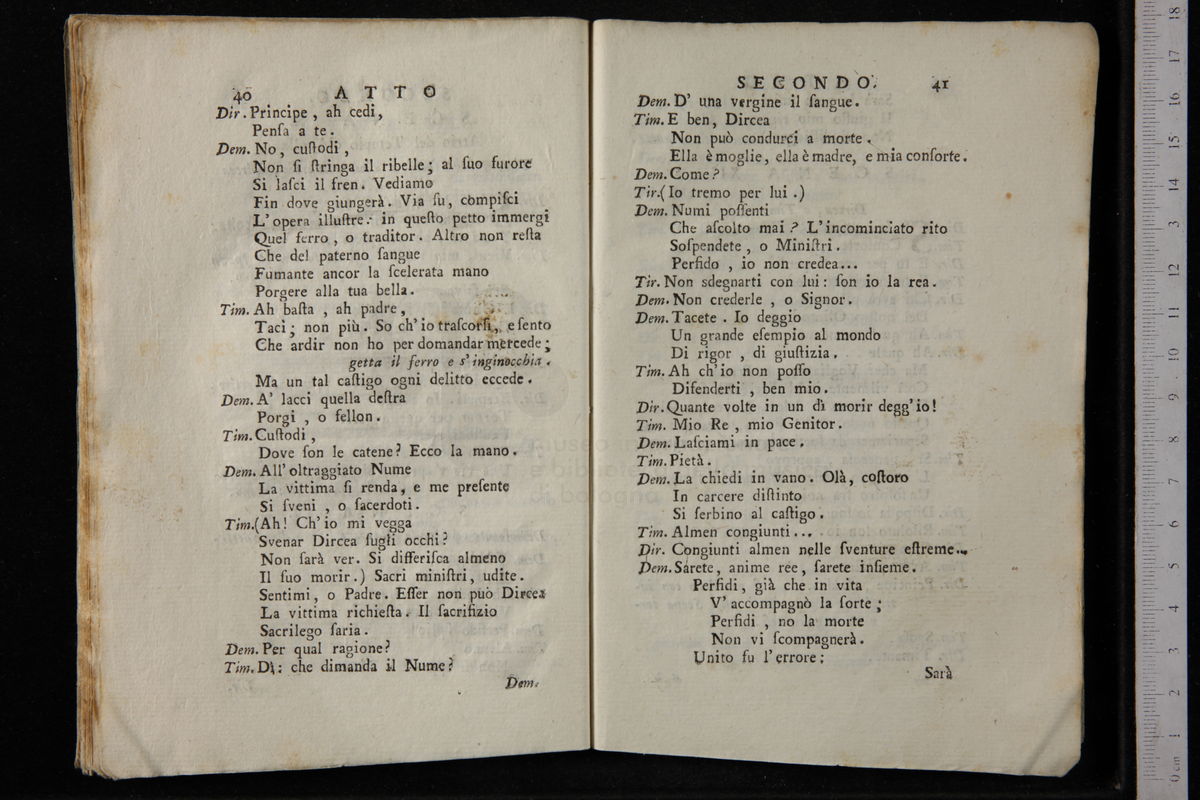 40 ATTO
Dir. Principe, ah cedi,
Penſa a te.
Dem. No, cuſtodi,
Non ſi ſtringa il ribelle; al ſuo furore
Si laſci il fren. Vediamo
Fin dove giungerà. Via ſu, compiſci
L'opera illuſtre: in queſto petto immergi
Quel ferro, o traditor. Altro non reſta
Che del paterno ſangue
Fumante ancor la ſcelerata mano
Porgere alla tua bella.
Tim. Ah baſta, ah padre,
Taci; non più. So ch'io traſcorſi, e ſento
Che ardir non ho per domandar mercede;
getta il ferro e s'inginocchia.
Ma un tal caſtigo ogni delitto eccede.
Dem. A' lacci quella deſtra
Porgi, o fellon.
Tim. Cuſtodi,
Dove ſon le catene? Ecco la mano.
Dem. All'oltraggiato Nume
La vittima ſi renda, e me preſente
Si ſveni, o ſacerdoti.
Tim. (Ah! Ch'io mi vegga
Svenar Dircea ſugli occhi?
Non ſarà ver. Si differiſca almeno
Il ſuo morir.) Sacri miniſtri, udite.
Sentimi, o Padre. Eſſer non può Dircea
La vittima richieſta. Il ſacrifizio
Sacrilego ſaria.
Dem. Per qual ragione?
Tim. Dì: che dimanda il Nume?
Dem.
SECONDO. 41
Dem. D' una vergine il ſangue.
Tim. E ben, Dircea
Non può condurci a morte.
Ella è moglie, ella è madre, e mia conſorte.
Dem. Come?
Tir. (Io tremo per lui.)
Dem. Numi poſſenti
Che aſcolto mai? L'incominciato rito
Soſpendete, o Miniſtri.
Perfido, io non credea...
Tir. Non sdegnarti con lui: ſon io la rea.
Dem. Non crederle, o Signor.
Dem. Tacete. Io deggio
Un grande eſempio al mondo
Di rigor, di giuſtizia.
Tim. Ah ch'io non poſſo
Difenderti, ben mio.
Dir. Quante volte in un dì morir degg'io!
Tim. Mio Re, mio Genitor.
Dem. Laſciami in pace.
Tim. Pietà.
Dem. La chiedi in vano. Olà, coſtoro
In carcere diſtinto
Si ſerbino al caſtigo.
Tim. Almen congiunti...
Dir. Congiunti almen nelle ſventure eſtreme...
Dem. Sarete, anime ree, ſarete inſieme.
Perfidi, già che in vita
V' accompagnò la ſorte;
Perfidi, no la morte
Non vi ſcompagnerà.
Unito fu l'errore;
Sarà